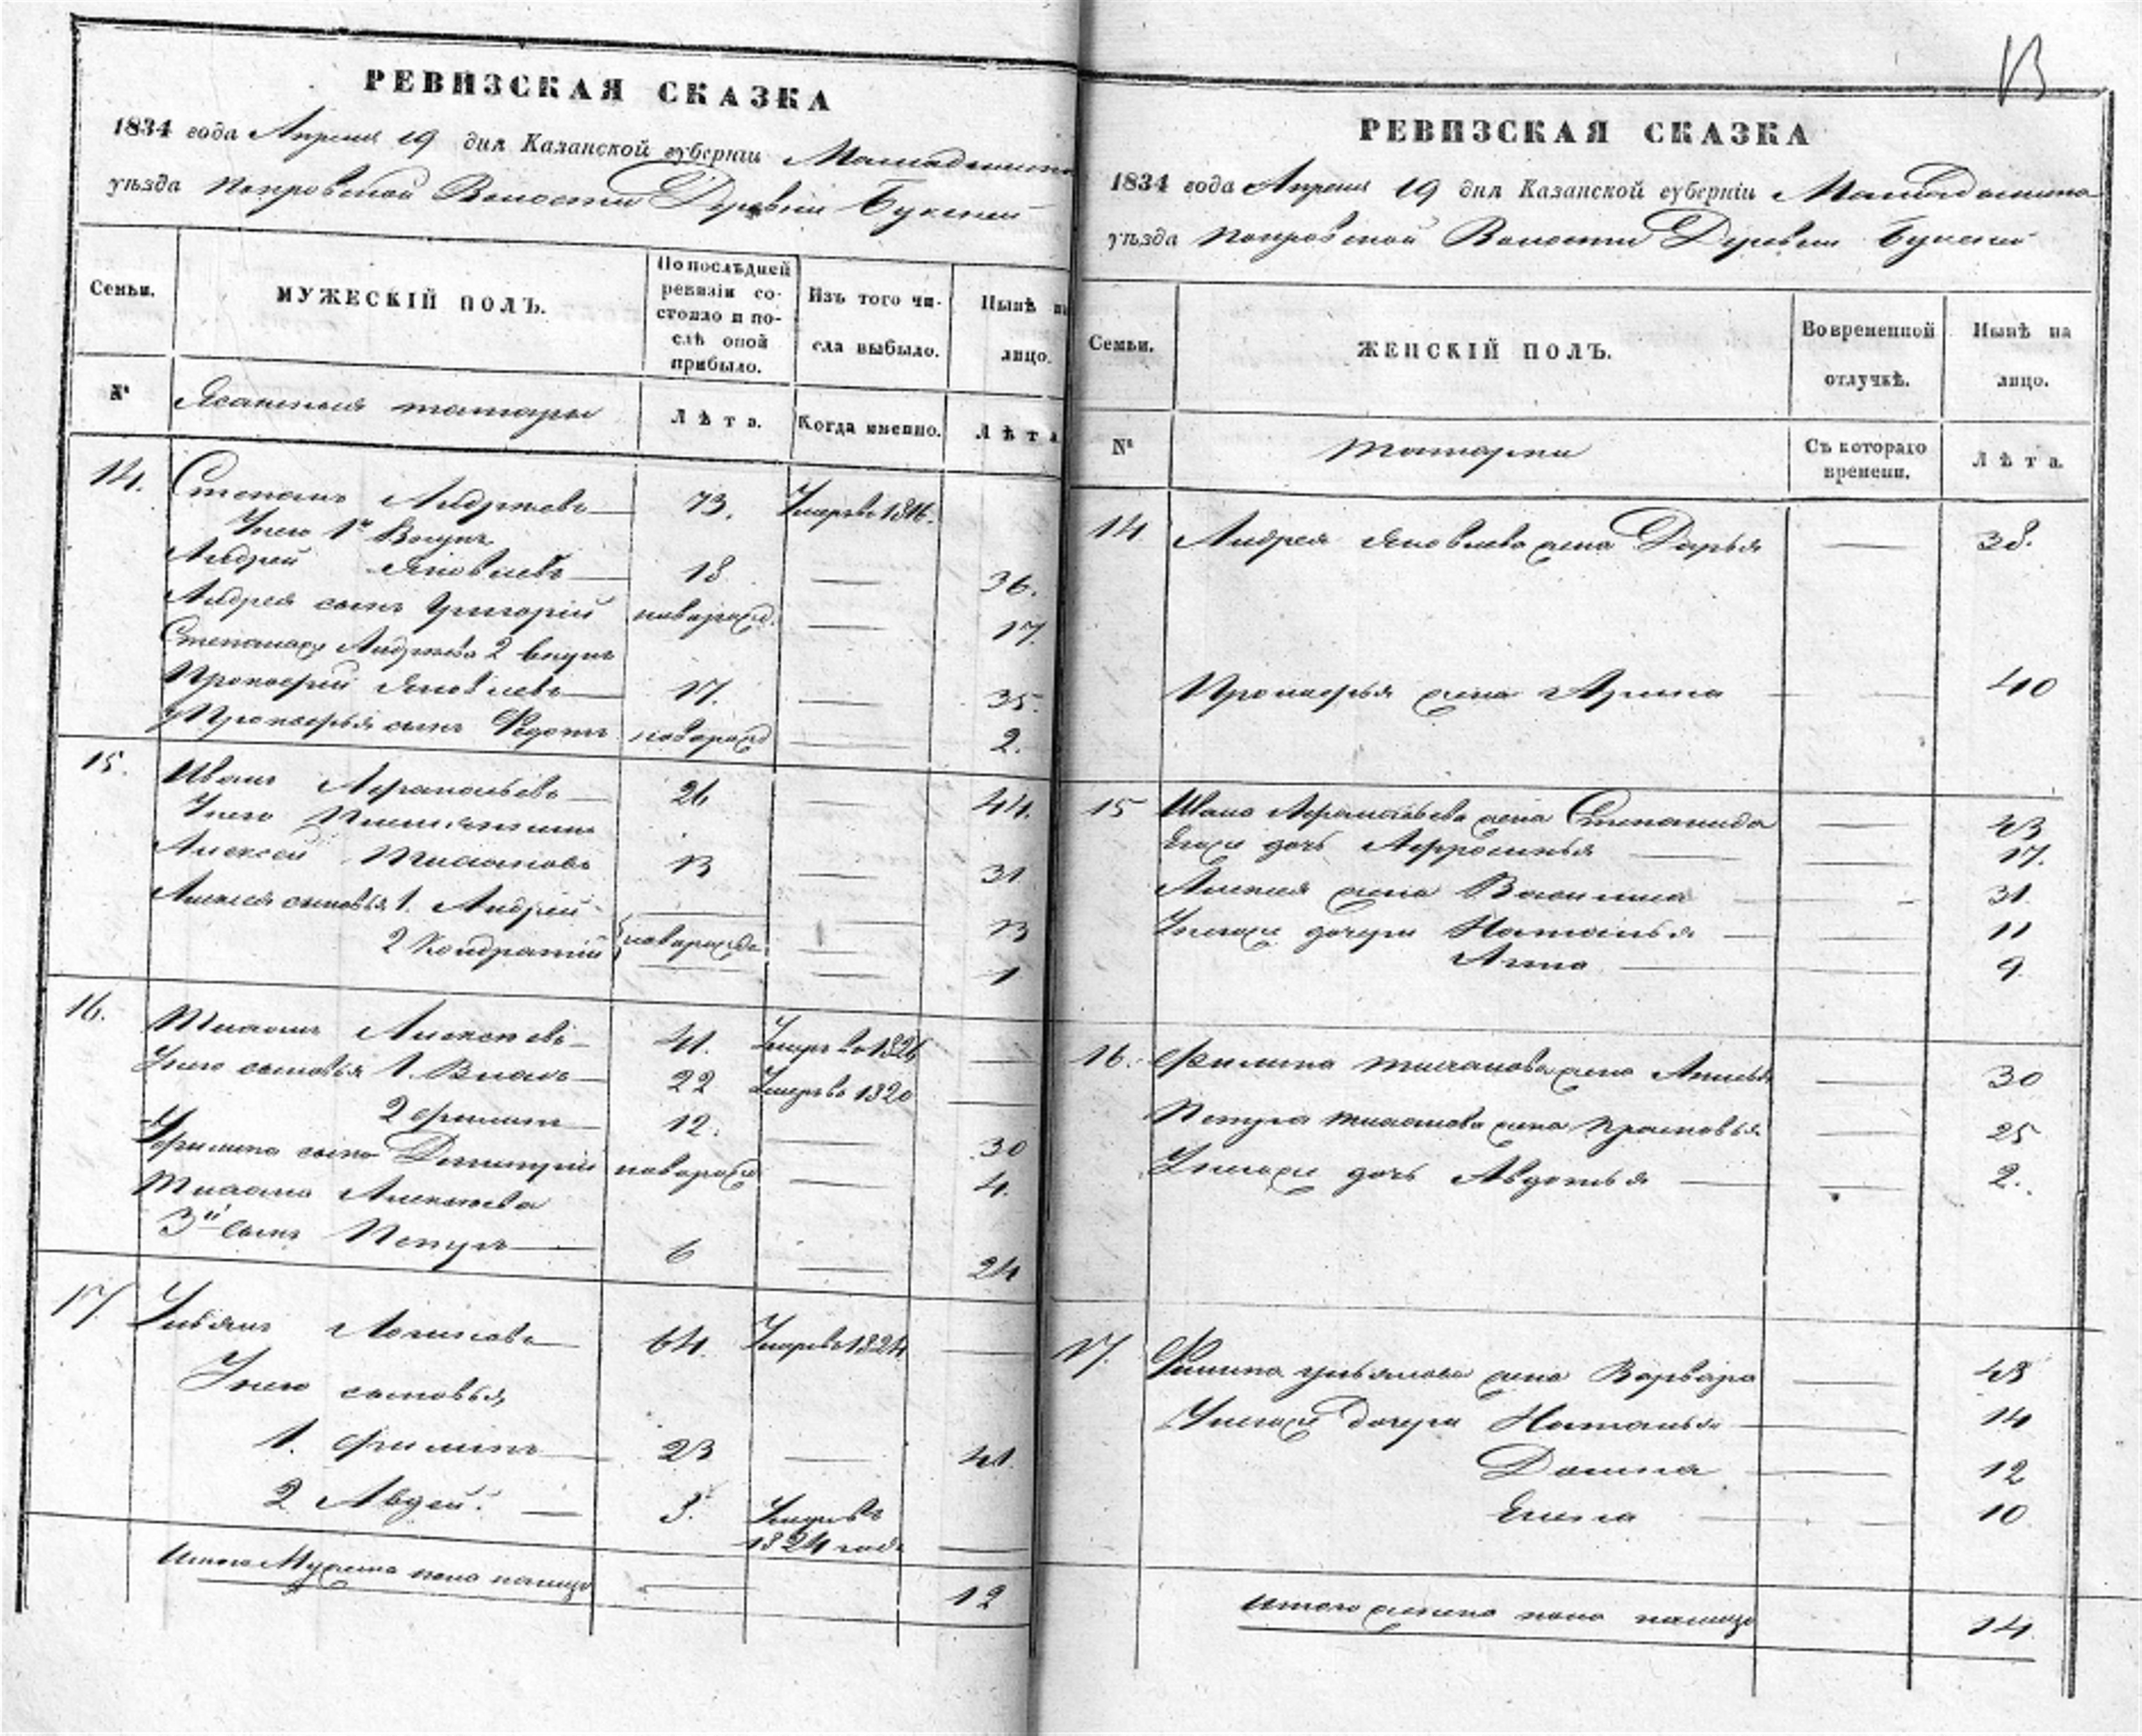 РЕВИЗСКАЯ СКАЗКА
1834 года Апреля 19 дня Казанской губерніи Мамадышскаго
уѣзда Покровской Волости Деревни
Семьи.
МУЖЕСКІЙ ПОЛЪ.
По послѣдней ревизіи состояло и послѣ оной прибыло.
Изъ того числа выбыло.
Нынѣ на лицо.
№
Ясашныя татары
Лѣта.
Когда именно.
Лѣта
14. Степанъ Андреевъ 73. Умеръ въ 1816.
У него 1й Внукъ
Андрей Яковлевъ 18 — 36.
Андрея сынъ Григорій новарожд. — 17.
Степана Андреева 2 внукъ
Прокофий Яковлевъ 17. — 35.
У Прокофья сынъ Федотъ новарожд — 2.
15. Иванъ Афанасьевъ 26 — 44.
У него Племянникъ
Алексей 13 — 31
Алексея сыновья 1. Андрей — 13
2 Кондратий новарожде — 1
16. Алексеевъ 41. Умеръ въ 1826 —
У него сыновья 1. Власъ 22 Умеръ въ 1820 —
2 Филипъ 12. — 30
У Филипа сынъ Димитрий новарожд — 4.
Алексеева
3й сынъ Петръ 6 — 24
17. Ульянъ 64. Умеръ въ 1824 —
У него сыновья
1. Филипъ 23 — 41.
2 Авдей. — 5. Умеръ въ
1824 годе —
Итого Мужеска пола налицо — 12
РЕВИЗСКАЯ СКАЗКА
1834 года Апреля 19 дня Казанской губерніи Мамадышскаго
уѣзда Покровской Волости Деревни
Семьи.
ЖЕНСКІЙ ПОЛЪ.
Во временной отлучкѣ.
Нынѣ на лицо.
№
Татарки
Съ котораго времени.
Лѣта.
14 Андрея Яковлева жена Дарья — 38.
Прокофья жена Арина — 40
15 Ивана Афанасьева жена Степанида — 43
Ево дочь Афросинья — 17.
Алексея жена Василиса — 31.
У них дочери Наталья — 11
Анна — 9
16. Филипа жена Анисья — 30
Петра жена Прасковья — 25
У них дочь Авдотья — 2.
17. Филипа Ульянова жена Варвара — 48
У них дочери Наталья — 14
Домна — 12
Елена — 10
Итого женска пола налицо 14.